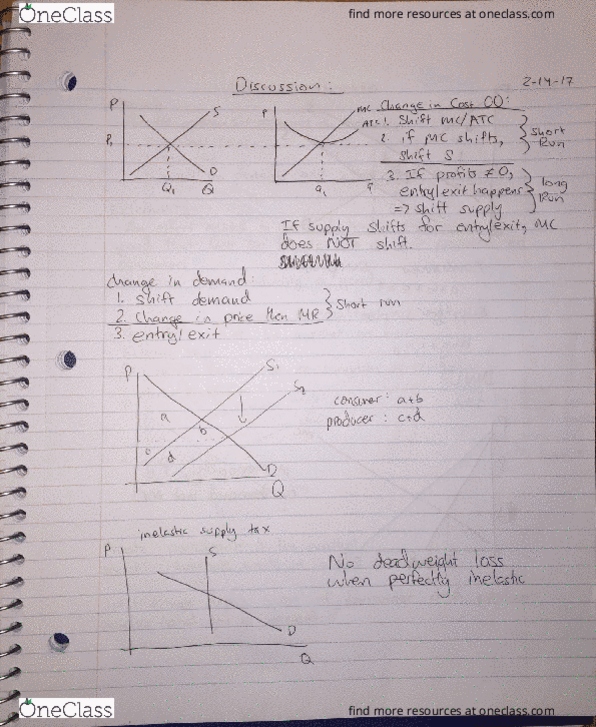 OneClass
find more resources at oneclass.com
Discussion:
2-14-17
P
S
P1
D
Q1
Q
P
MC
ATC
q1
q
Change in Cost
1. Shift MC/ATC
2. if MC shifts,
shift S
Short
Run
3. If profits ≠ 0,
entry/exit happens
=> shift supply
long
Run
If supply shifts for entry/exit, MC
does NOT shift.
change in demand:
1. shift demand
2. Change in price then MR
3. entry/exit
Short run
P
S1
S2
a
b
c
d
D
Q
consumer: a+b
producer: c+d
inelastic supply tax
P
S
D
Q
No deadweight loss
when perfectly inelastic
OneClass
find more resources at oneclass.com